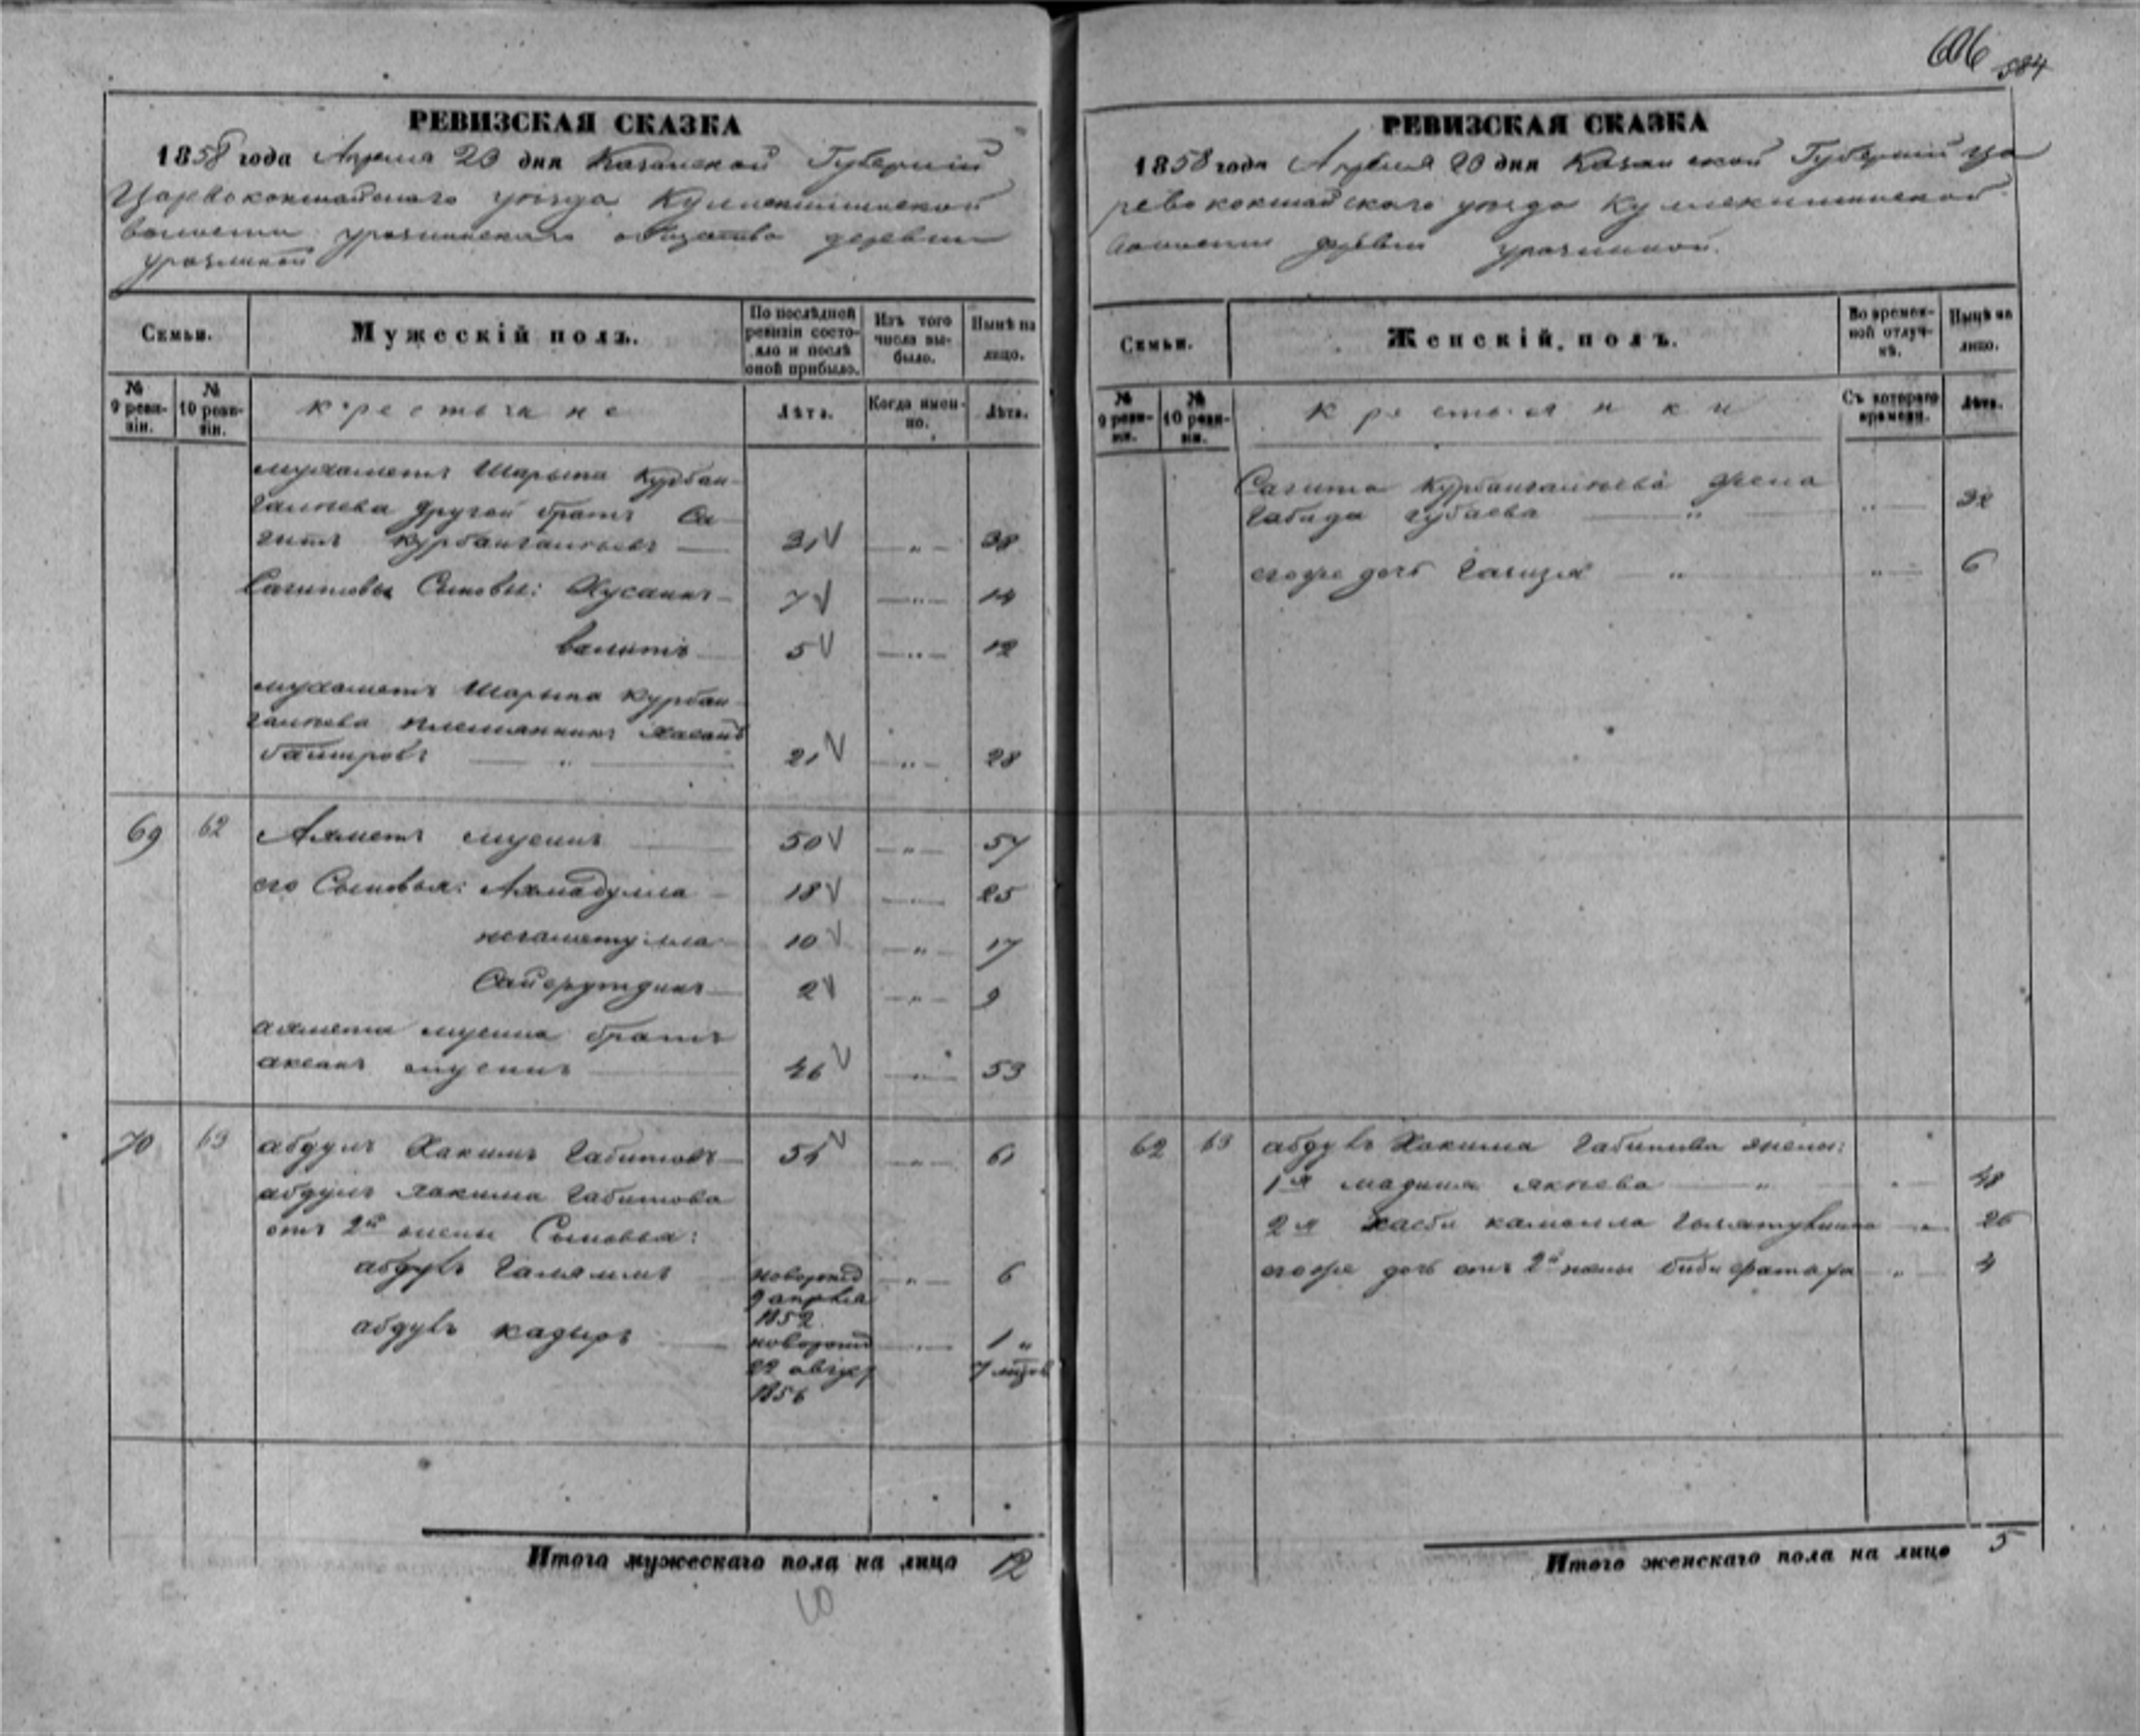 606 584
РЕВИЗСКАЯ СКАЗКА
1858 года Апреля 20 дня Казанской Губернiи
Царевококшайскаго уѣзда
волости общества деревни
Семьи.
Мужескiй полъ.
По послѣдней ревизiи состояло и послѣ оной прибыло.
Изъ того числа выбыло.
Нынѣ на лицо.
№ 9 ревизiи.
№ 10 ревизiи.
крестьяне
Лѣта.
Когда именно.
Лѣта.
мухаметъ Шарыпа Курбан-
галѣева другой братъ Са-
гитъ Курбангалѣевъ 31 V „ 38
Сагитовы Сыновья: Хусаинъ 7 V „ 14
валитъ 5 V „ 12
мухаметъ Шарыпа Курбан-
галѣева племянникъ Хасанъ
21 V „ 28
69 62 Ахметъ мусинъ 50 V „ 57
его Сыновья: Ахмадулла 18 V „ 25
негаметулла 10 V „ 17
2 V „ 9
ахмета мусина братъ
мусинъ 46 V „ 53
70 63 абдулъ Хакимъ Габитовъ 54 V „ 61
абдулъ хакима Габитова
отъ 2й жены Сыновья:
абдулъ Галямъ новорожд „ 6
9 апреля
1852
абдулъ кадыръ новорожд „ 1 „
22 август 7 мѣсяц
1856
Итого мужескаго пола на лицо 12
10
РЕВИЗСКАЯ СКАЗКА
1858 года Апреля 20 дня Казанской Губернiи Ца
ревококшайскаго уѣзда
волости деревни
Семьи.
Женскiй полъ.
Во временной отлучкѣ.
Нынѣ на лицо.
№ 9 ревизiи.
№ 10 ревизiи.
крестьянки
Съ котораго времени.
Лѣта.
Сагита Курбангалѣева жена
Габида губаева „ „ 32
его же дочь „ „ 6
62 63 абдулъ Хакима Габитова жены:
1я мадина якпева „ 48
2я камилла „ 26
его же дочь отъ 2й жены биби „ 4
Итого женскаго пола на лицо 5